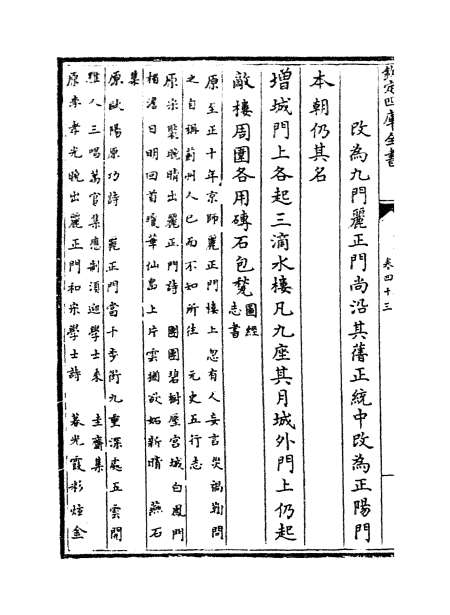 欽定四庫全書
卷四十三
改為九門麗正門尚沿其舊正統中改為正陽門
本朝仍其名
增城門上各起三滴水樓凡九座其月城外門上仍起
敵樓周圍各用磚石包甃圖經志書
原至正十年京師麗正門樓上忽有人妄言災禍鞫問
之自稱薊州人已而不知所往　元史五行志
原宋褧晚晴出麗正門詩　團團碧樹壓宮城白鳳門
楣澹日明回首瓊華仙島上片雲猶欲妬新晴　燕石
集
原歐陽原功詩　麗正門當千步街九重深處五雲開
雞人三唱萬官集應制須迎學士來　圭齋集
原李孝光晚出麗正門和宋學士詩　暮光霞彩煙金